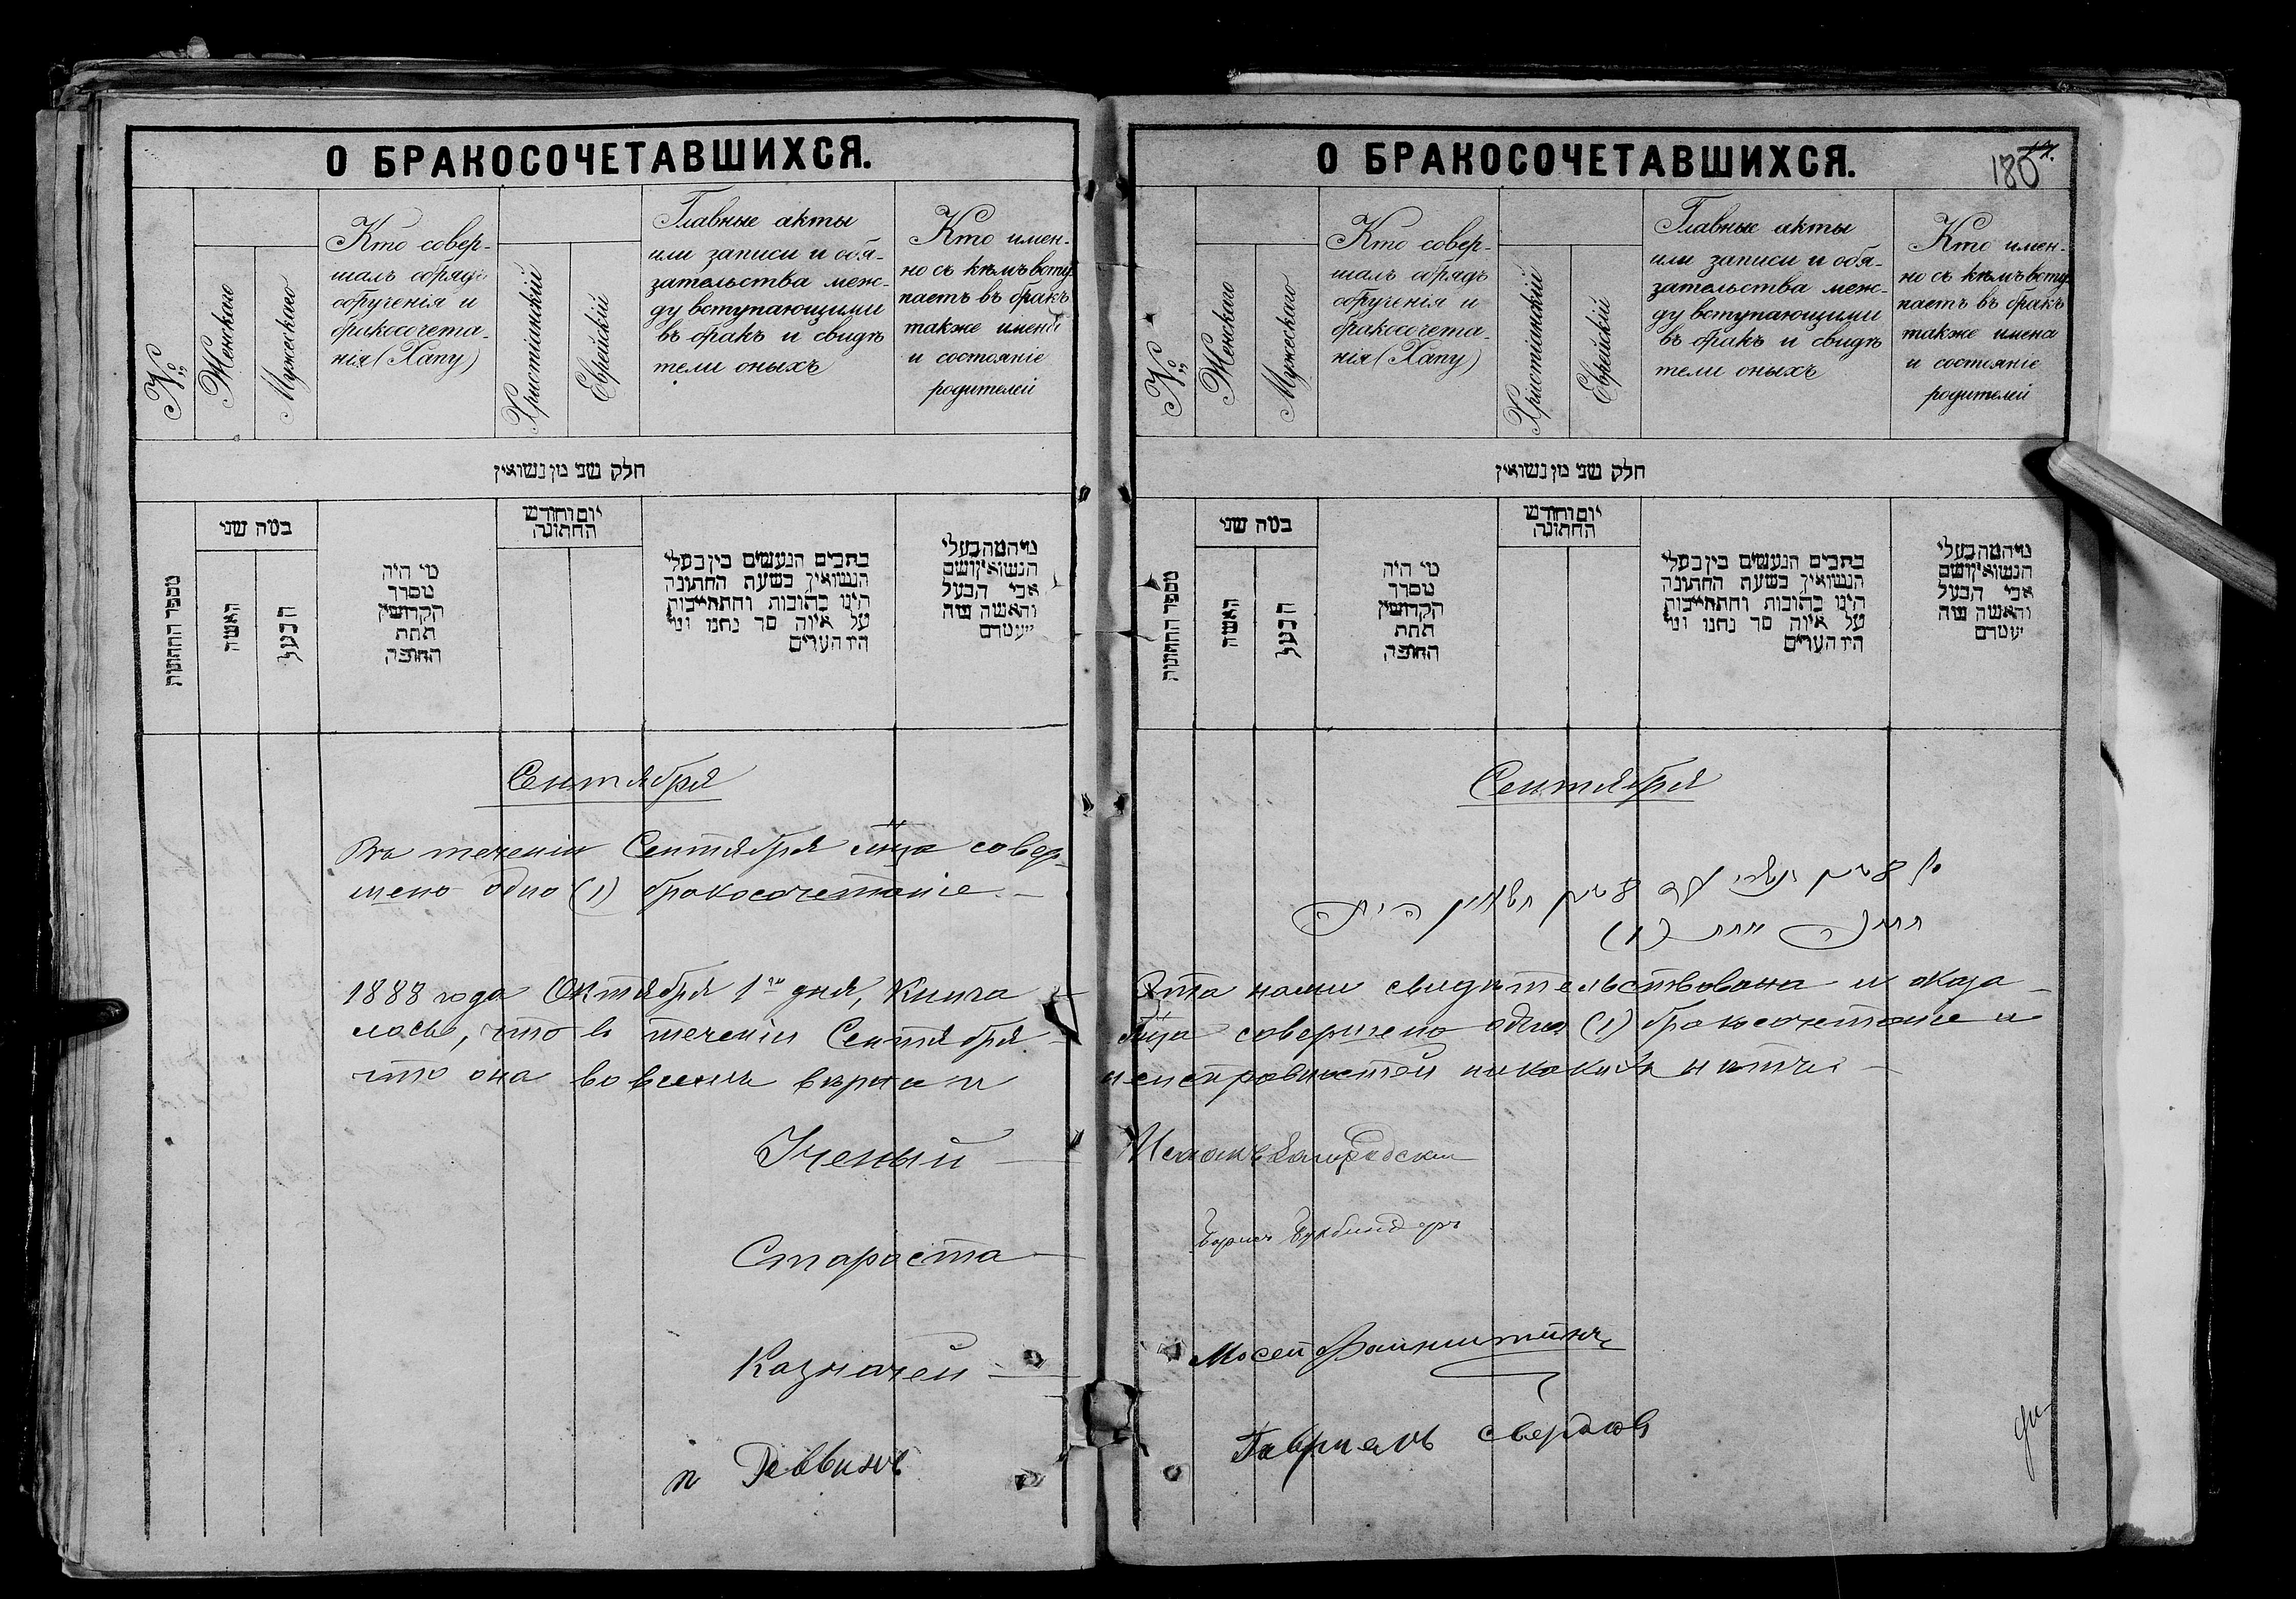 О БРАКОСОЧЕТАВШИХСЯ.
№
Женскаго
Мужескаго
Кто совер-
шалъ обрядъ
обрученія и
бракосочета-
нія (Хапу)
Христіанскій
Еврейскій
Главные акты
или записи и обя-
зательства меж-
ду вступающими
въ бракъ и свидѣ
тели оныхъ
Кто имен-
но съ кѣмъ всту
паетъ въ бракъ
также имена
и состояніе
родителей
חלק שני מן נשואין
מספר החתונות
כמה שני
האשה
הבעל
מי היה
מסדר
הקדושין
תחת
החופה
יום וחודש
החתונה
כתבים הנעשים בין בעלי
הנשואין בשעת החתונה
הינו כתובות והתחייבות
על איזה סך נתנו ומי
היו העדים
מי המה בעלי
הנשואין ושם
אבי הבעל
והאשה ומה
מעמדם
Сентября
Въ теченіи Сентября м-ца совер-
шено одно (1) бракосочетаніе. —
1888 года Октября 1го дня, Книга
лось, что въ теченіи Сентября
что она во всемъ вѣрна и
Ученый —
Староста —
Казначей —
п Раввинъ
О БРАКОСОЧЕТАВШИХСЯ.
180
№
Женскаго
Мужескаго
Кто совер-
шалъ обрядъ
обрученія и
бракосочета-
нія (Хапу)
Христіанскій
Еврейскій
Главные акты
или записи и обя-
зательства меж-
ду вступающими
въ бракъ и свидѣ
тели оныхъ
Кто имен-
но съ кѣмъ всту
паетъ въ бракъ
также имена
и состояніе
родителей
חלק שני מן נשואין
מספר החתונות
כמה שני
האשה
הבעל
מי היה
מסדר
הקדושין
תחת
החופה
יום וחודש
החתונה
כתבים הנעשים בין בעלי
הנשואין בשעת החתונה
הינו כתובות והתחייבות
על איזה סך נתנו ומי
היו העדים
מי המה בעלי
הנשואין ושם
אבי הבעל
והאשה ומה
מעמדם
Сентября
(1)
Эта нами свидѣтельствована и оказа-
м-ца совершено одно (1) бракосочетаніе и
неисправностей никакихъ нѣтъ. —
Борисъ Букбиндеръ
Мосей Файнштейнъ
Гавріелъ Свердловъ